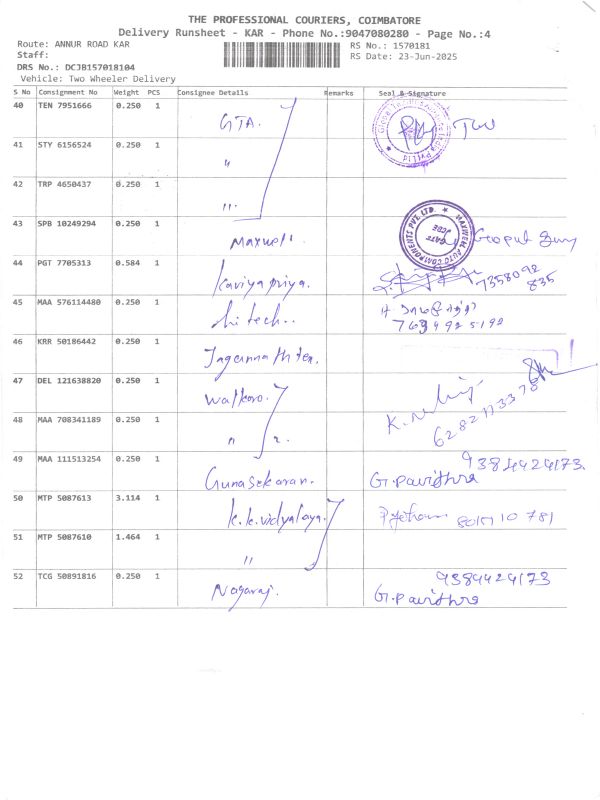 THE PROFESSIONAL COURIERS, COIMBATORE
Delivery Runsheet - KAR - Phone No.:9047080280 - Page No.:4
Route: ANNUR ROAD KAR
RS No.: 1570181
Staff:
RS Date: 23-Jun-2025
DRS No.: DCJB157018104
Vehicle: Two Wheeler Delivery
S No Consignment No Weight PCS Consignee Details Remarks Seal & Signature
40 TEN 7951666 0.250 1 GTA.
41 STY 6156524 0.250 1 "
42 TRP 4650437 0.250 1 "
43 SPB 10249294 0.250 1 Maxwell.
MAXWELL AUTO COMPONENTS PVT. LTD.
GATE
44 PGT 7705313 0.584 1 Kaviya priya. 7358092
835
45 MAA 576114480 0.250 1 hitech..
46 KRR 50186442 0.250 1
47 DEL 121638820 0.250 1
48 MAA 708341189 0.250 1 " 6282173378
49 MAA 111513254 0.250 1 Gunasekaran. 9384424173.
G.pavithra
50 MTP 5087613 3.114 1 k.k.vidyalaya.
51 MTP 5087610 1.464 1 "
52 TCG 50891816 0.250 1 Nagaraj. 9384424173
G.pavithra